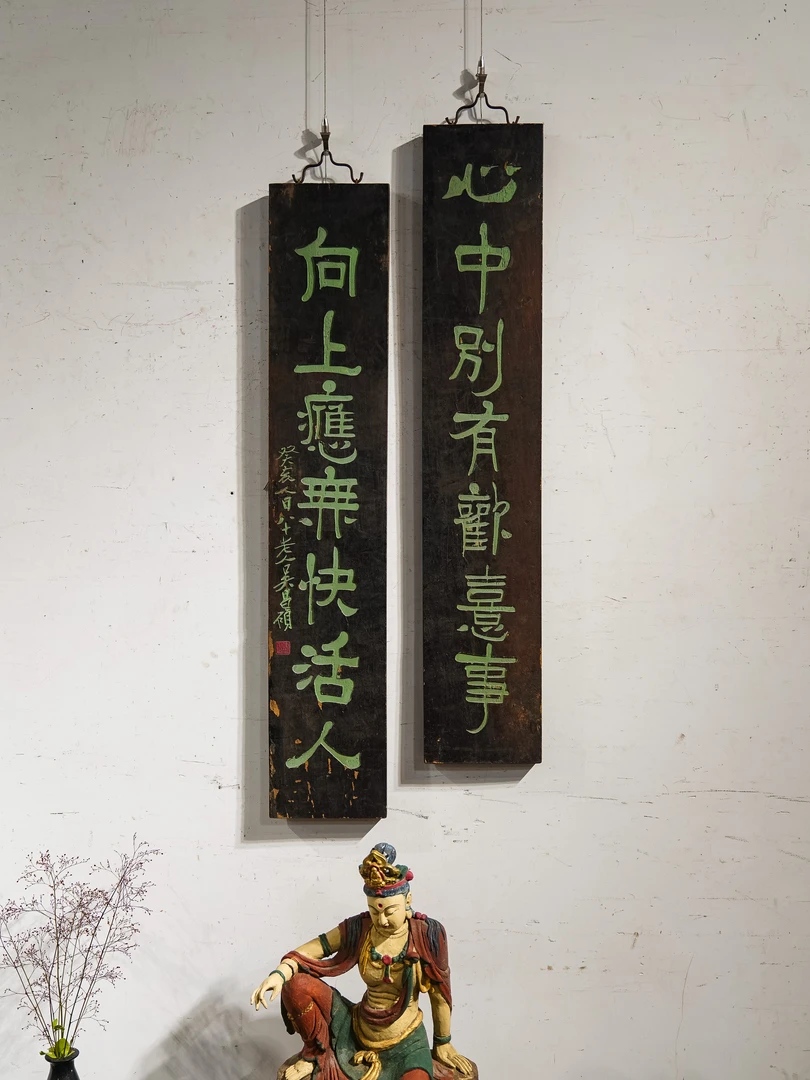 心中別有歡喜事
向上應無快活人
癸亥人日八十老人吳昌碩